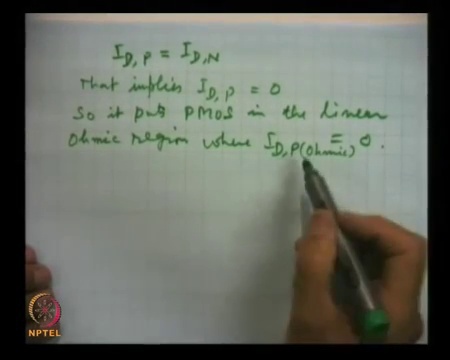 I_D,P = I_D,N
That implies I_D,P = 0
So it puts PMOS in the Linear
Ohmic region where I_D,P(Ohmic) = 0.
NPTEL